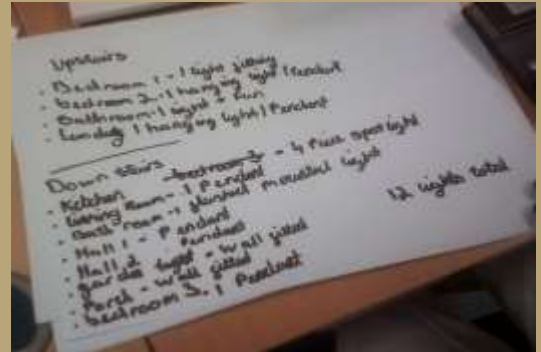 Upstairs
· Bedroom 1 - 1 light fitting
· bedroom 2. 1 hanging light / Pendant
· Bathroom - 1 light + Fan
· Landing 1 hanging light / Pendant
Down stairs
· Kitchen bedroom 3 - 4 Piece spot light
· Living room - 1 Pendant
· Bath room - 1 mounted light
· Hall 1 - Pendant
· Hall 2 Pendant
· garden light - wall fitted
· Porch - wall fitted
· bedroom 3. 1 Pendant
12 lights total